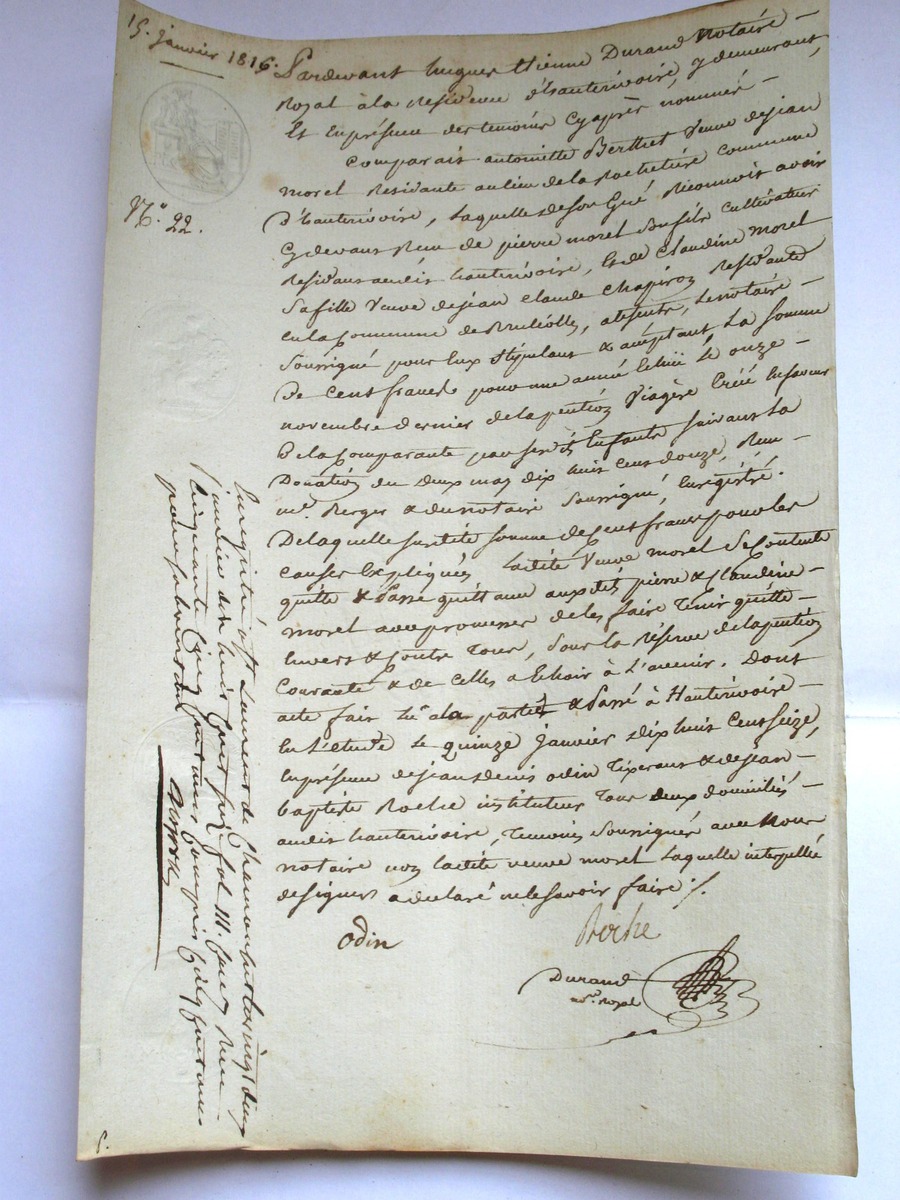 15. janvier 1816.
N.º 22.
Pardevant hugues Etienne Durand Notaire
Royal à la Residence d'hauterivoire, y demeurant,
Et En présence des temoins Cyaprès nommés
Comparait antoinette Berthet veuve de jean
morel Residante au lieu de la Rochetière commune
D'hauterivoire, Laquelle de son Gré Reconnoit avoir
Cydevant Reçu de pierre morel son fils cultivateur
Residant audit hauterivoire, Et de Claudine morel
Sa fille Veuve de jean claude Chapiron Residante
En la Commune de Brulliolles, absents, le notaire
Soussigné pour Eux stipulant & acceptant, La somme
De Cent francs pour une année Echue le onze
novembre dernier de la pention Viagère Créée En faveur
De la Comparante par ses dts Enfants suivant la
Donation du deux may dix huit Cent douze, Reçu
mᵉ. Berger & du notaire Soussigné, Enregistré.
De laquelle susdite somme de Cent francs pour les
causes Expliquées Ladite Veuve morel Se Contente
quitte & Passe quittance auxdts pierre & Claudine
morel avec promesse de les faire Tenir quitte
Envers & Contre Tous, Sous la Réserve de la pention
Courante & de Celles a Echoir à L'avenir. Dont
acte fait lu a la partie & Passé à Hauterivoire
En L'etude Le quinze Janvier dix huit Cent Seize,
En présence de jean denis odin Tixerant & de jean
baptiste Roche instituteur Tous deux domiciliés
audit hauterivoire, Temoins Soussignés avec Nous
notaire non ladite veuve morel Laquelle interpellée
de signer a déclaré ne le savoir faire ./.
Odin
Roche
Durand
nʳᵉ. Royal
Enregistré à St Laurent de Chamousset le vingt deux
janvier dix huit cent seize fol 111 Cue 7 Reçu
Cinquante Cinq centimes Compris Cinq centimes
pour subvention